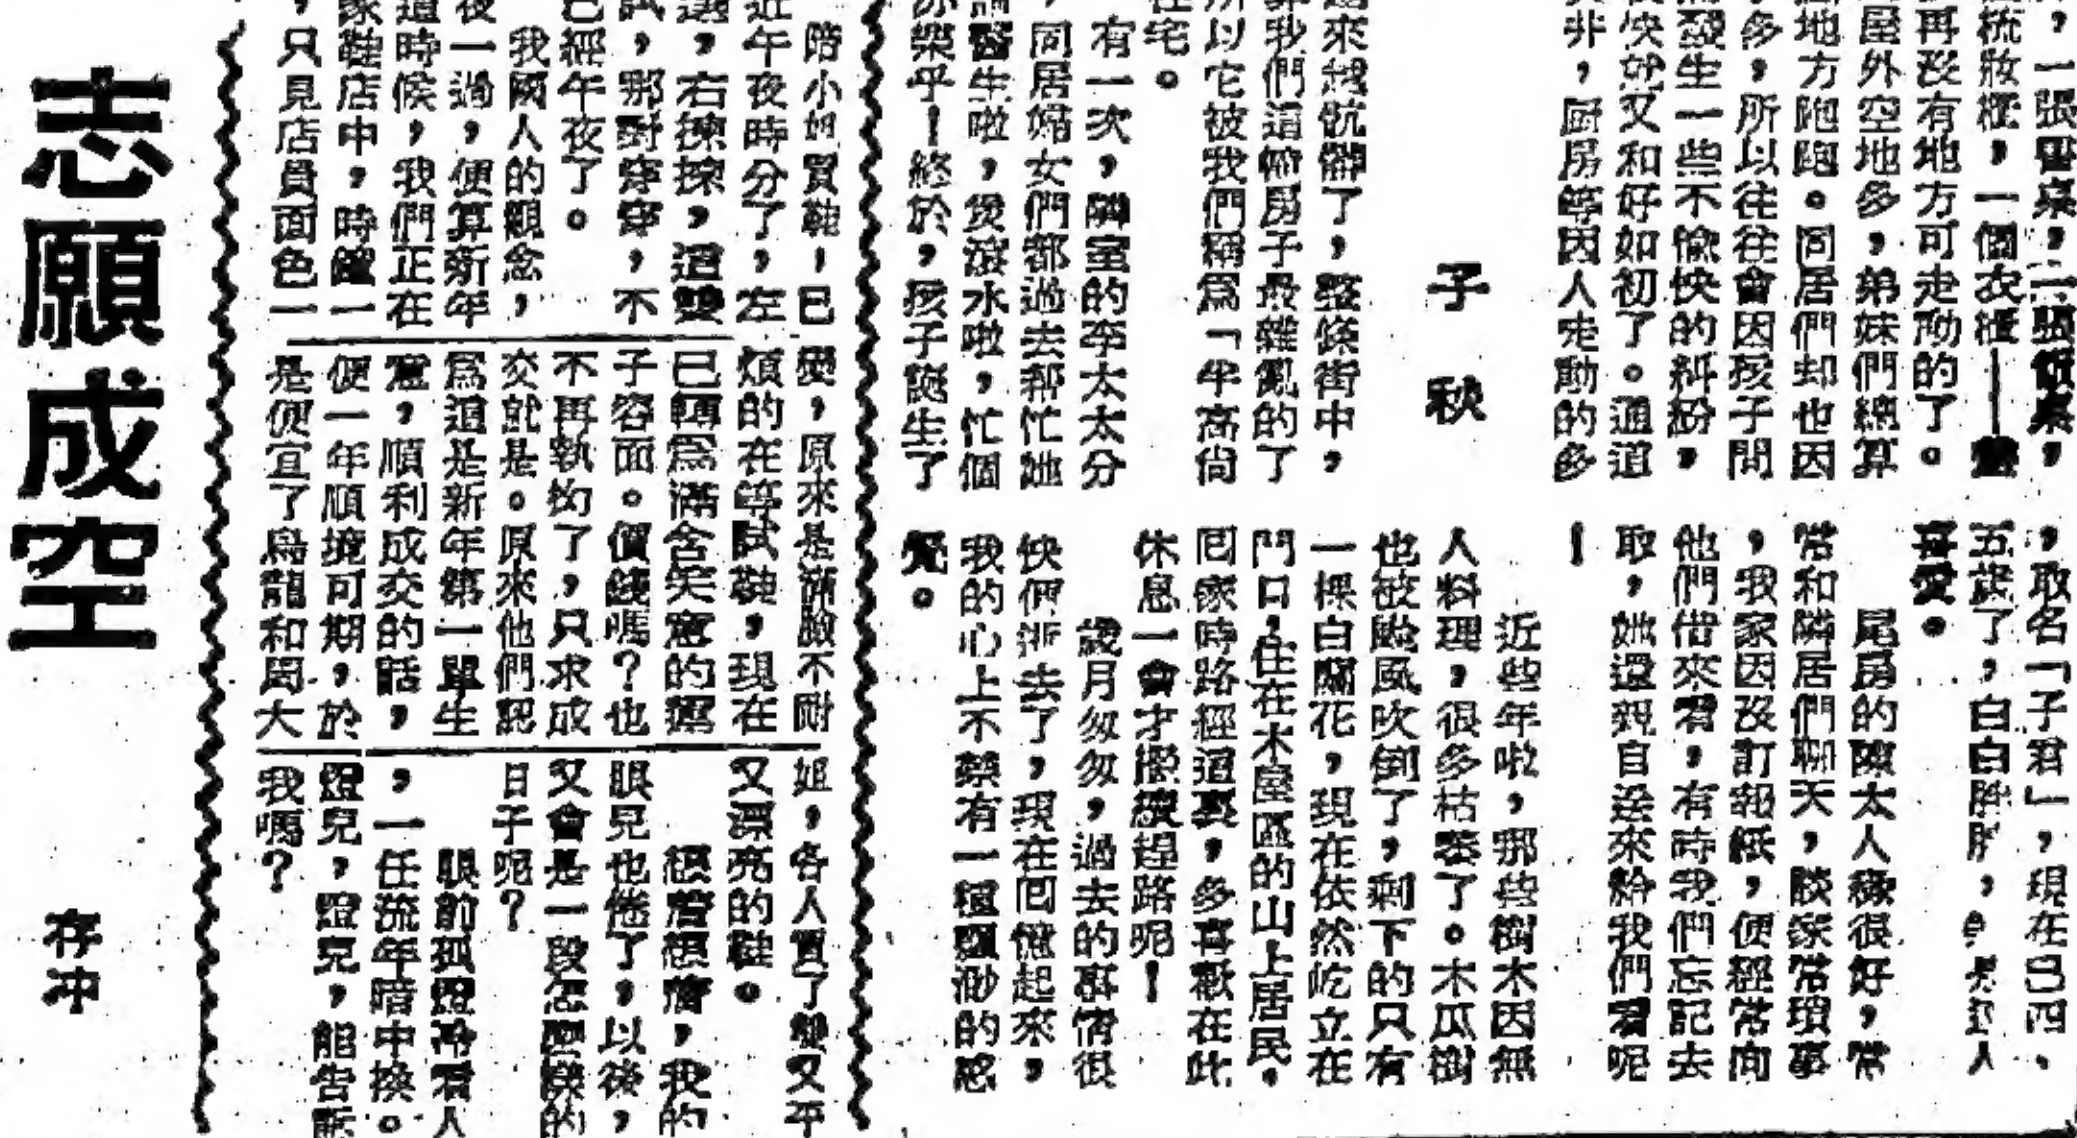 ，一張書桌，二張飯桌，
梳妝檯，一個衣櫃——
再沒有地方可走動的了。
屋外空地多，弟妹們總算
地方跑跑。同居們却也因
多，所以往往會因孩子間
發生一些不愉快的糾紛，
快就又和好如初了。通道
非，厨房等因人走動的多
子秋
來越骯髒了，整條街中，
我們這幢房子最雜亂的了
所以它被我們稱爲「半高尚
住宅。
有一次，隣室的李太太分
，同居婦女們都過去帮忙她
醫生啦，煲滾水啦，忙個
亦樂乎！終於，孩子誕生了
，取名「子君」，現在已四、
五歲了，白白胖胖，
喜愛。
尾房的陳太人緣很好，常
常和隣居們聊天，談家常瑣事
，我家因沒訂報紙，便經常向
他們借來看，有時我們忘記去
取，她還親自送來給我們看呢
！
近些年啦，那些樹木因無
人料理，很多枯萎了。木瓜樹
也被颱風吹倒了，剩下的只有
一棵白蘭花，現在依然屹立在
門口，住在木屋區的山上居民，
回家時路經這裏，多喜歡在此
休息一會才繼續趕路呢！
歲月匆匆，過去的事情很
快便逝去了，現在回憶起來，
我的心上不禁有一種飄渺的感
覺。
陪小姐買鞋，已
近午夜時分了，左
選，右揀揀，這雙
試，那對穿穿，不
已經午夜了。
我國人的觀念，
夜一過，便算新年
這時候，我們正在
家鞋店中，時鐘一
，只見店員面色一
變，原來是滿臉不耐
煩的在等試鞋，現在
已轉爲滿含笑意的
子容面。價錢嗎？也
不再執拗了，只求成
交就是。原來他們認
爲這是新年第一單生
意，順利成交的話，
便一年順境可期，於
是便宜了烏龍和周大
姐，各人買了雙又平
又漂亮的鞋。
想着想着，我的
眼兒也倦了，以後，
又會是一段怎麼樣的
日子呢？
眼前孤燈冷看人
，一任流年暗中換。
燈兒，燈兒，能告訴
我嗎？
志願成空
存冲